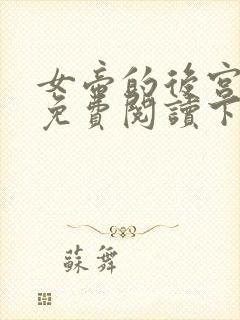 女帝的後宮
免費閱讀下
蘇舞